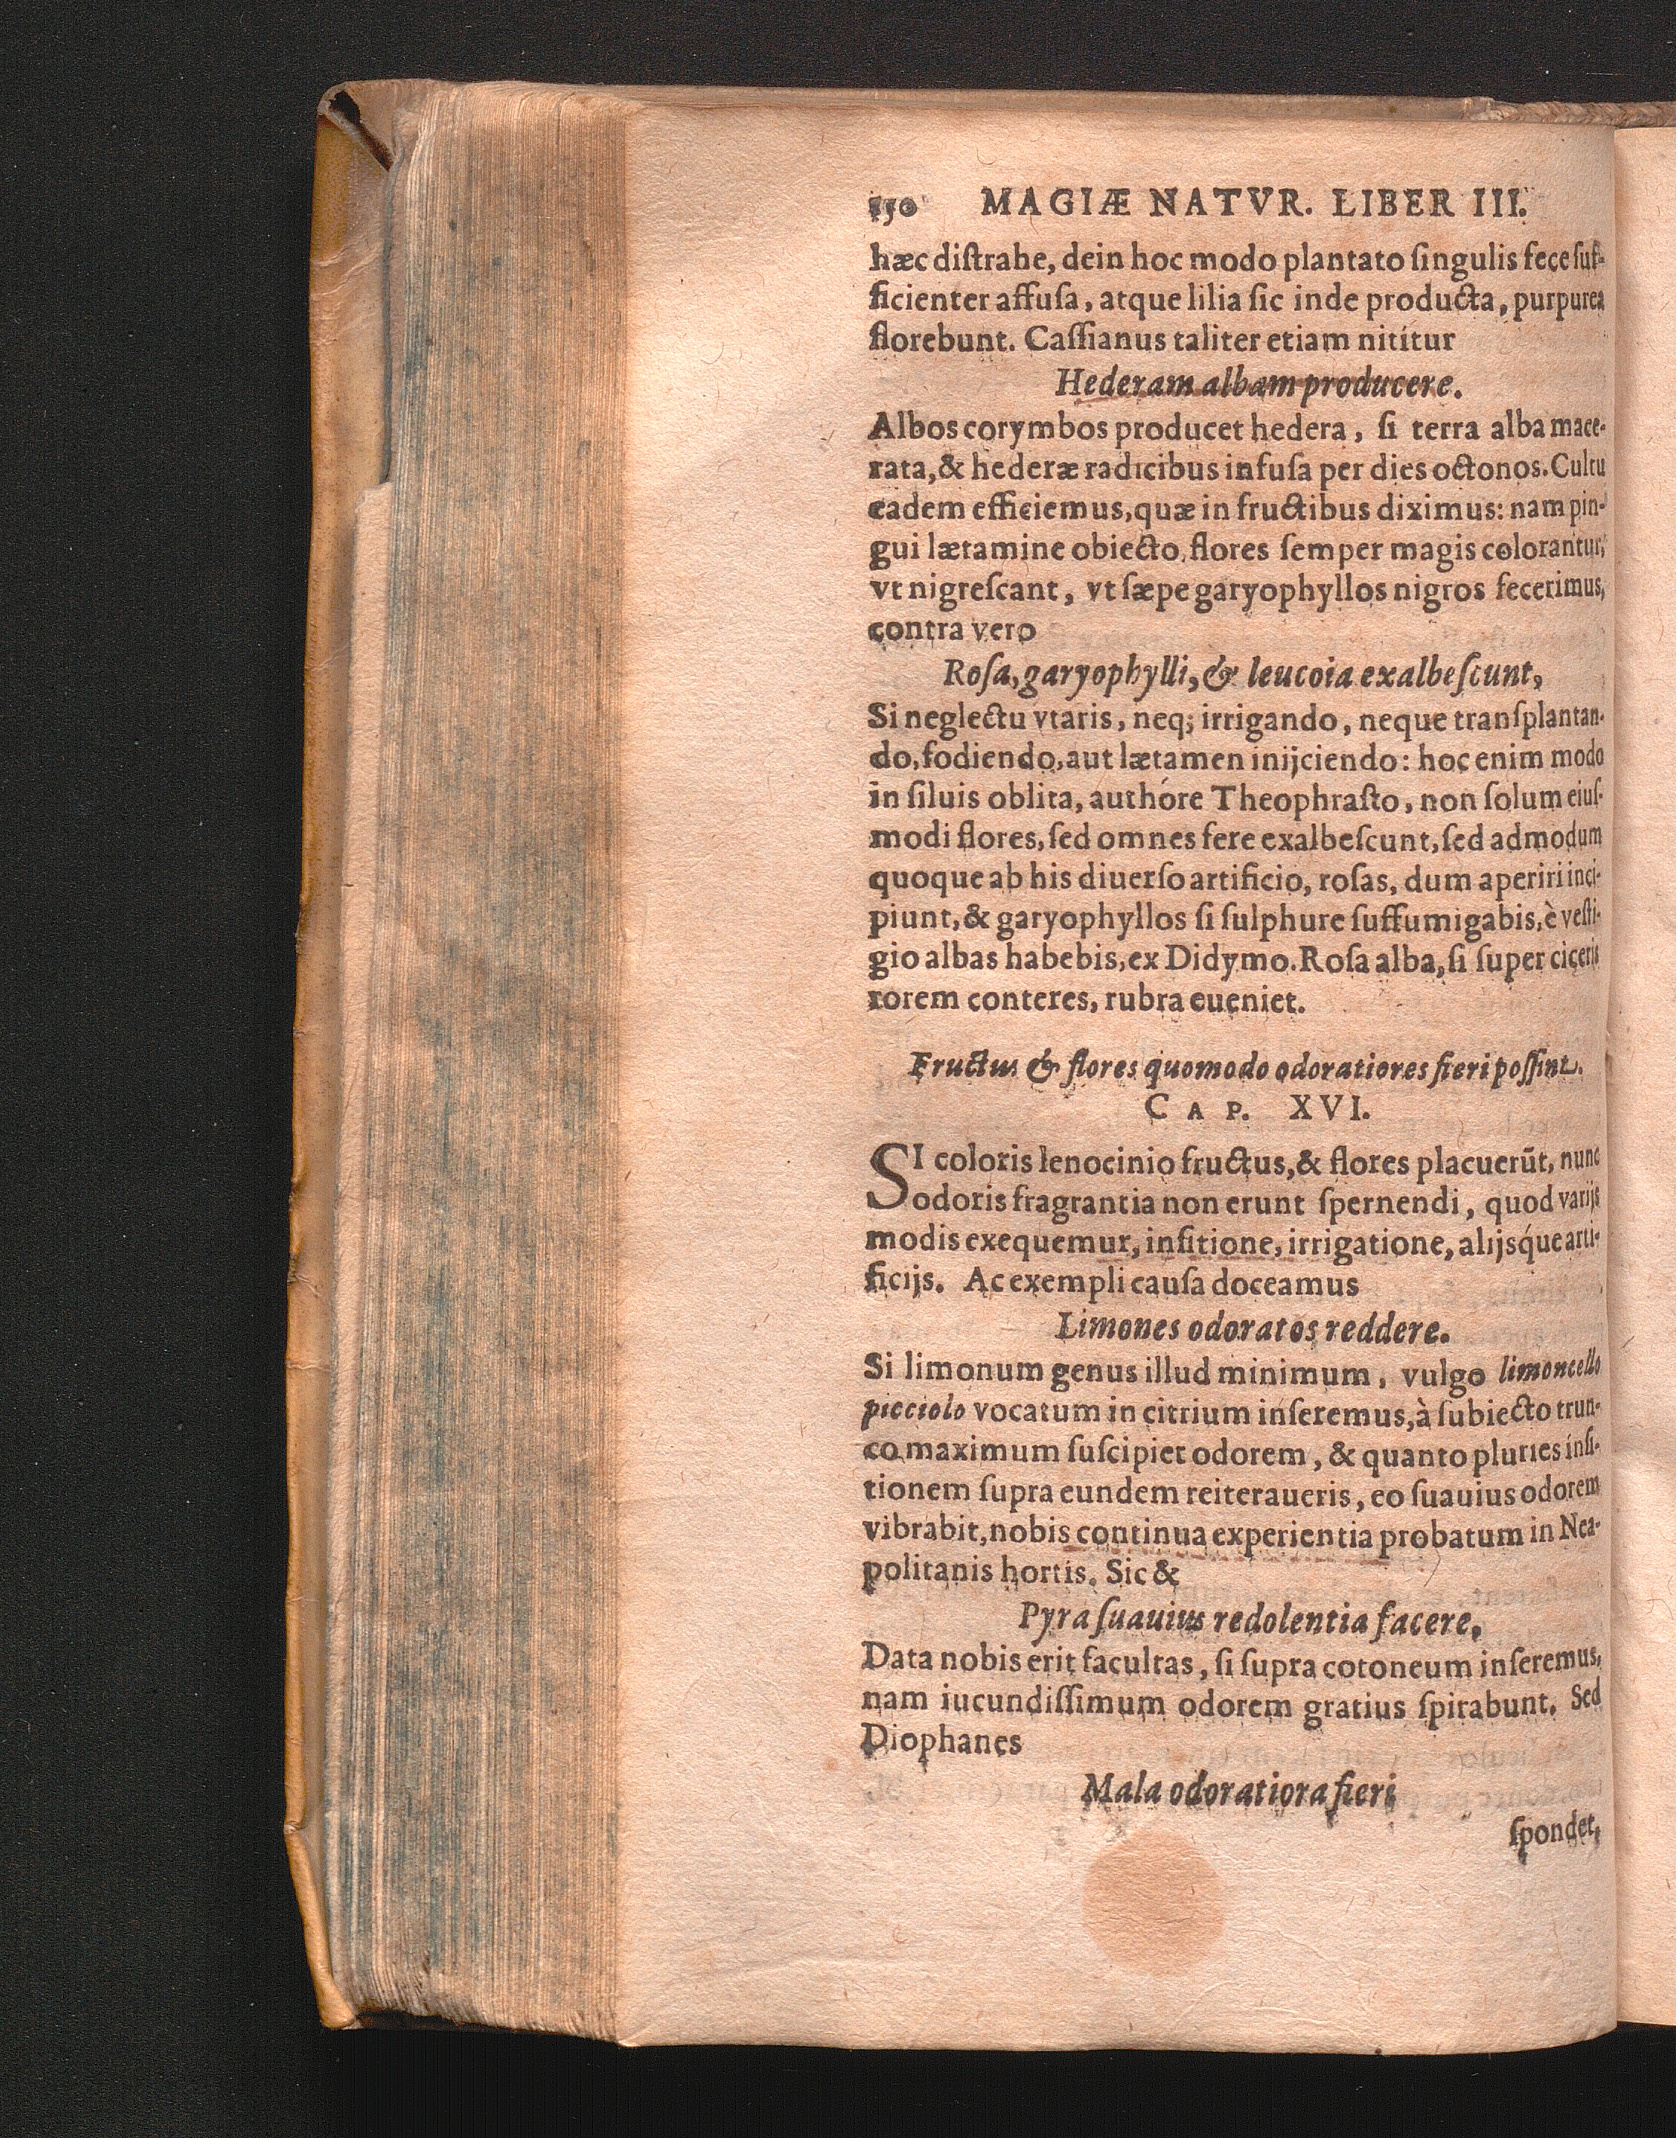 150 MAGIÆ NATVR. LIBER III.
hæc diſtrahe, dein hoc modo plantato ſingulis fece ſuf-
ficienter affuſa, atque lilia ſic inde producta, purpurea
florebunt. Caſſianus taliter etiam nititur
Hederam albam producere.
Albos corymbos producet hedera, ſi terra alba mace-
rata, & hederæ radicibus infuſa per dies octonos. Cultu
eadem efficiemus, quæ in fructibus diximus: nam pin-
gui lætamine obiecto, flores ſemper magis colorantur,
vt nigreſcant, vt ſæpe garyophyllos nigros fecerimus,
contra vero
Roſa, garyophylli, & leucoia exalbeſcunt,
Si neglectu vtaris, neq; irrigando, neque tranſplantan-
do, fodiendo, aut lætamen inijciendo: hoc enim modo
in ſiluis oblita, authóre Theophraſto, non ſolum eiuſ-
modi flores, ſed omnes fere exalbeſcunt, ſed admodum
quoque ab his diuerſo artificio, roſas, dum aperiri inci-
piunt, & garyophyllos ſi ſulphure ſuffumigabis, è veſti-
gio albas habebis, ex Didymo. Roſa alba, ſi ſuper ciceris
rorem conteres, rubra eueniet.
Fructus & flores quomodo odoratiores fieri poſſint.
CAP. XVI.
SI coloris lenocinio fructus, & flores placuerūt, nunc
odoris fragrantia non erunt ſpernendi, quod varijs
modis exequemur, inſitione, irrigatione, alijsq́ue arti-
ficijs. Ac exempli cauſa doceamus
Limones odoratos reddere.
Si limonum genus illud minimum, vulgo limoncello
picciolo vocatum in citrium inſeremus, à ſubiecto trun-
co maximum ſuſcipiet odorem, & quanto pluries inſi-
tionem ſupra eundem reiteraueris, eo ſuauius odorem
vibrabit, nobis continua experientia probatum in Nea-
politanis hortis. Sic &
Pyra ſuauius redolentia facere,
Data nobis erit facultas, ſi ſupra cotoneum inſeremus,
nam iucundiſſimum odorem gratius ſpirabunt. Sed
Diophanes
Mala odoratiora fieri
ſpondet,